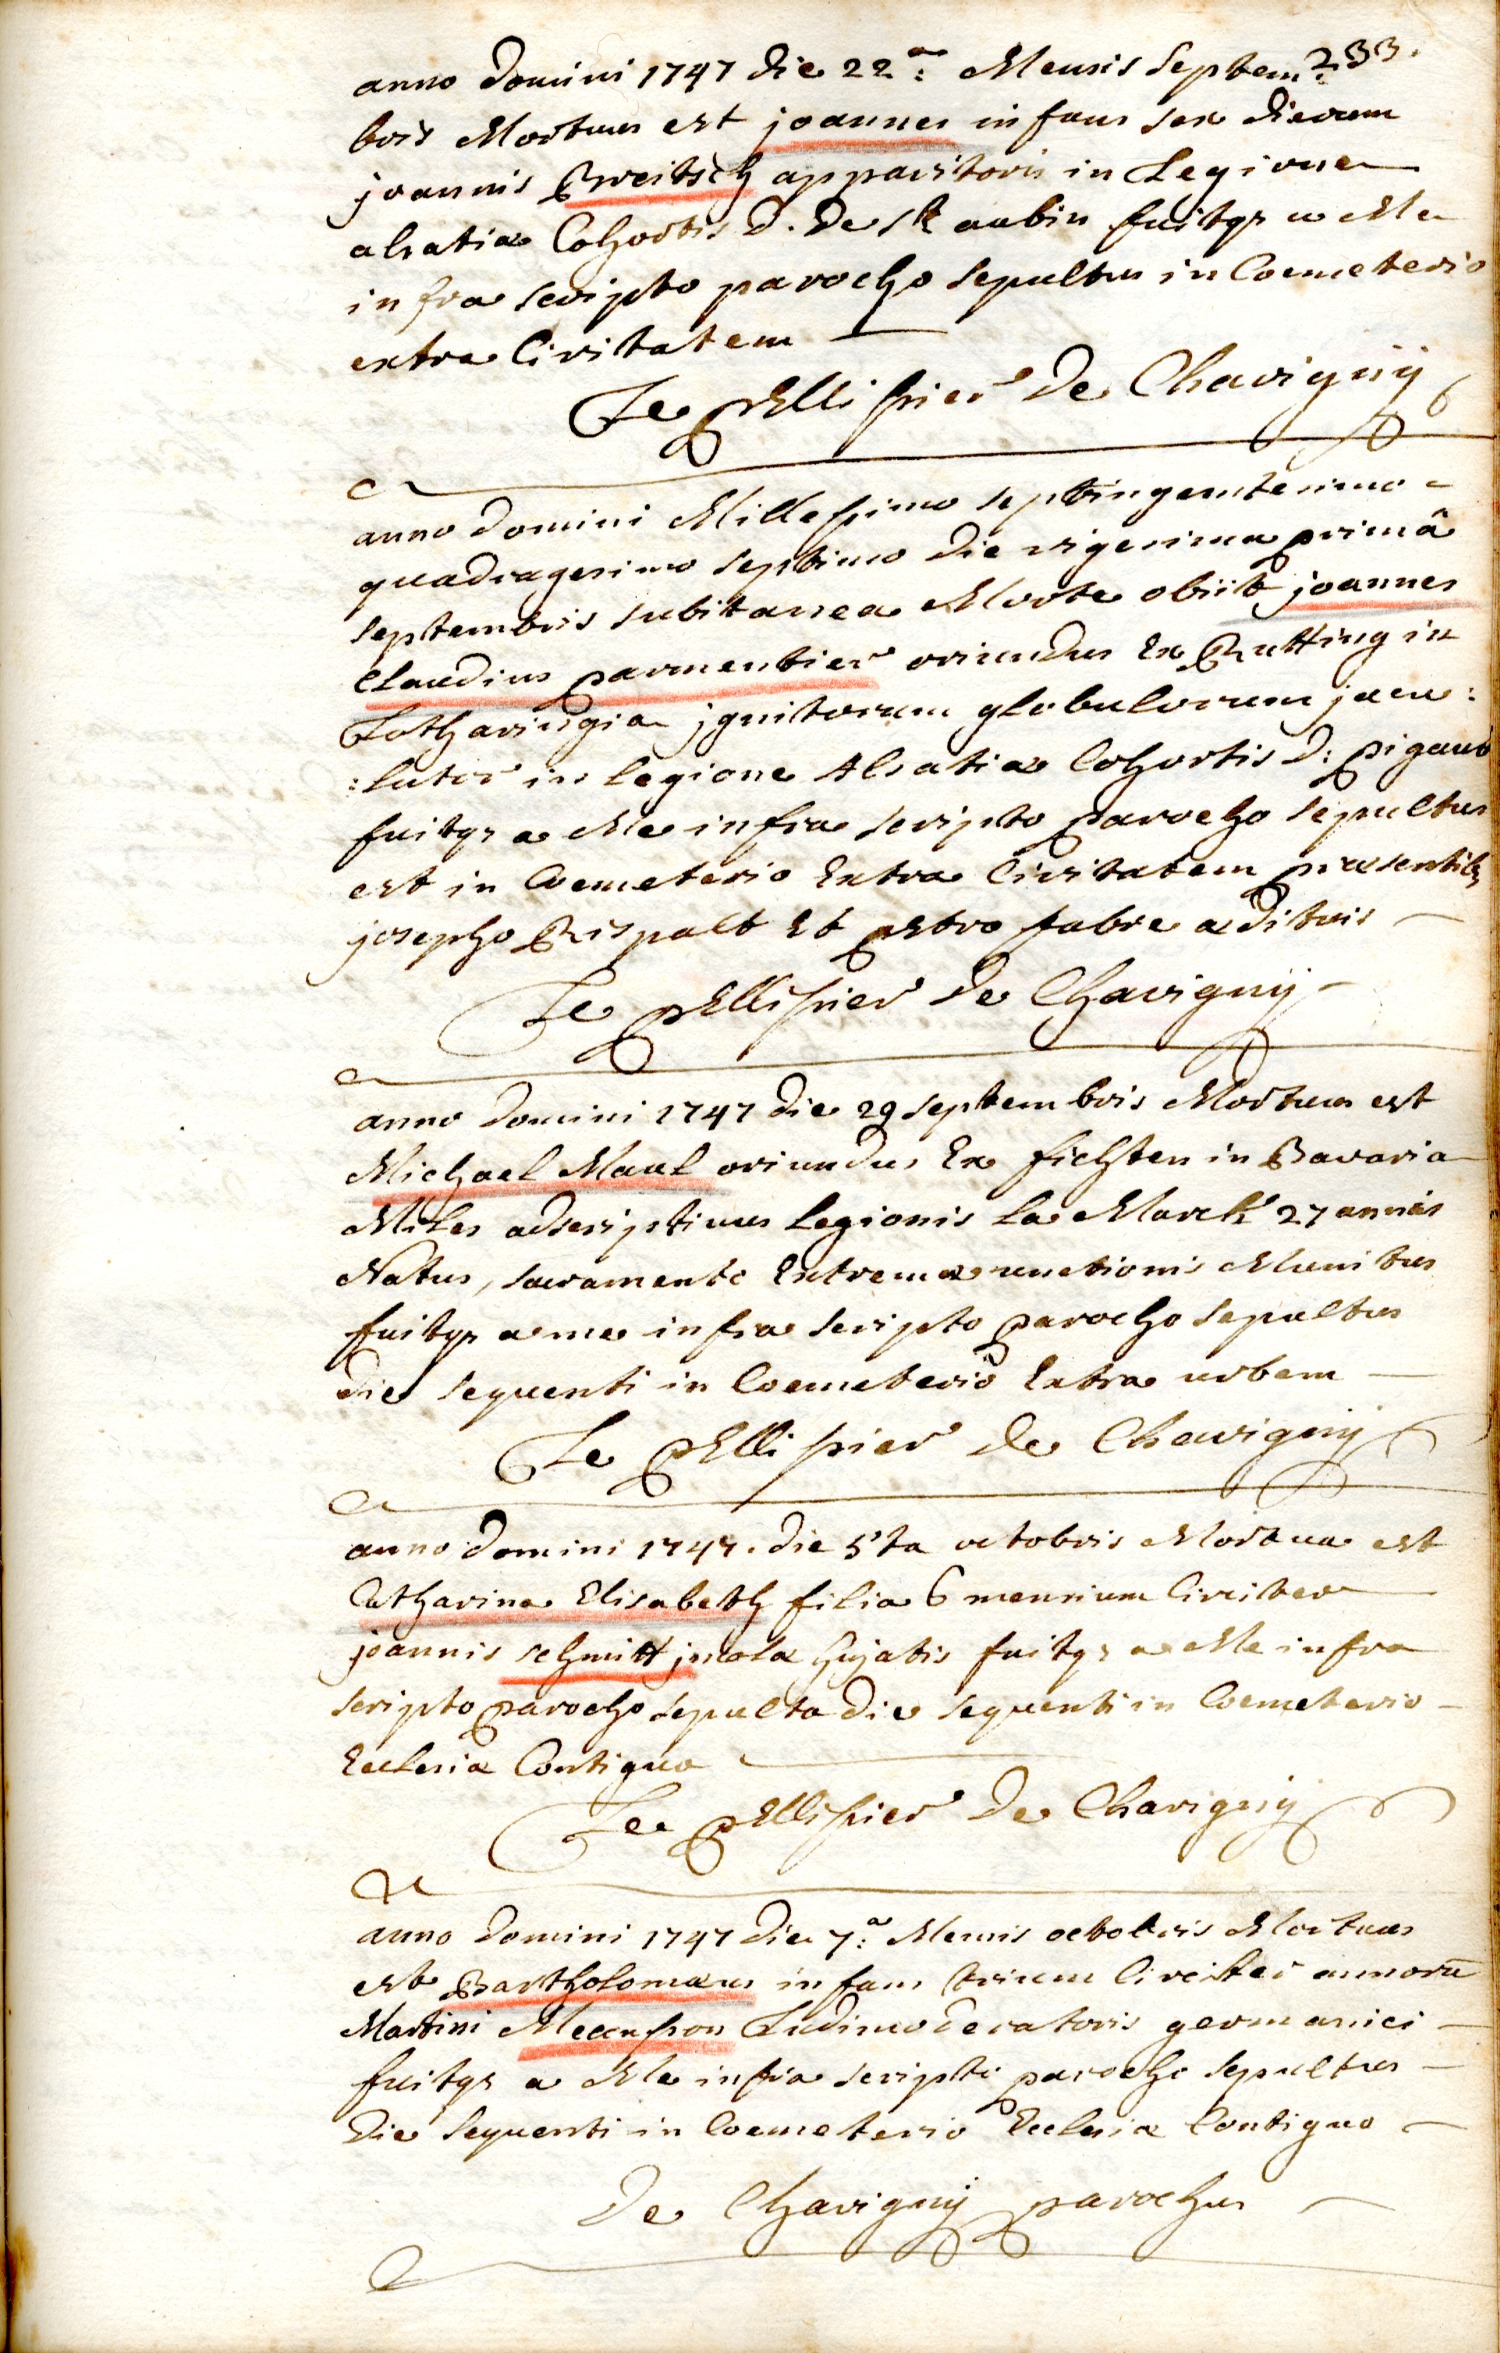 233.
anno Domini 1747 die 22.a Mensis Septem:
bris Mortuus est joannes infans sex dierum
joannis Breitsch apparitoris in Legione
alsatiæ Cohortis D. De St aubin fuitqz a Me
infra scripto parocho sepultus in Coemeterio
extra Civitatem
Le pEllissier De Chavignÿ
anno Domini Millesimo septingentesimo
quadragesimo septimo die vigesima primâ
septembris subitanea Morte obiit joannes
Claudius parmentier oriundus Ex Rutting in
Lotharingia jgnitorum globulorum jacu:
:lator in legione Alsatiæ Cohortis D: pigault
fuitqz a Me infra scripto parocho sepultus
est in Coemeterio Extra Civitatem præsentibz
josepho Rispalt Et pEtro fabre ædituis
Le pEllissier De Chavignÿ
anno Domini 1747 die 29 septembris Mortuus est
Michael Maul oriundus Ex fichsten in Bavaria
Miles adscriptimus legionis la Marck 27 annis
Natus, sacramento Extremæ unctionis Munitus
fuitqz a me infra scripto parocho sepultus
die sequenti in Coemeterio Extra urbem
Le pEllissier De Chavignÿ
anno Domini 1747. die 5'ta octobris Mortua est
Catharina Elisabeth filia 6 mensium Circiter
joannis schmitt jncolæ hujatis fuitqz a Me infra
scripto parocho sepulta die sequenti in Coemeterio
Ecclesiæ Contiguo
Le pEllissier De Chavignÿ
anno Domini 1747 die 7.a Mensis octobris Mortuus
est Bartholomæus infans trium Circiter annorū
Martini Ludimoderatoris germanici
fuitqz a Me infra scripto parocho sepultus
die sequenti in Coemeterio Ecclesiæ Contiguo
De Chavignÿ parochus